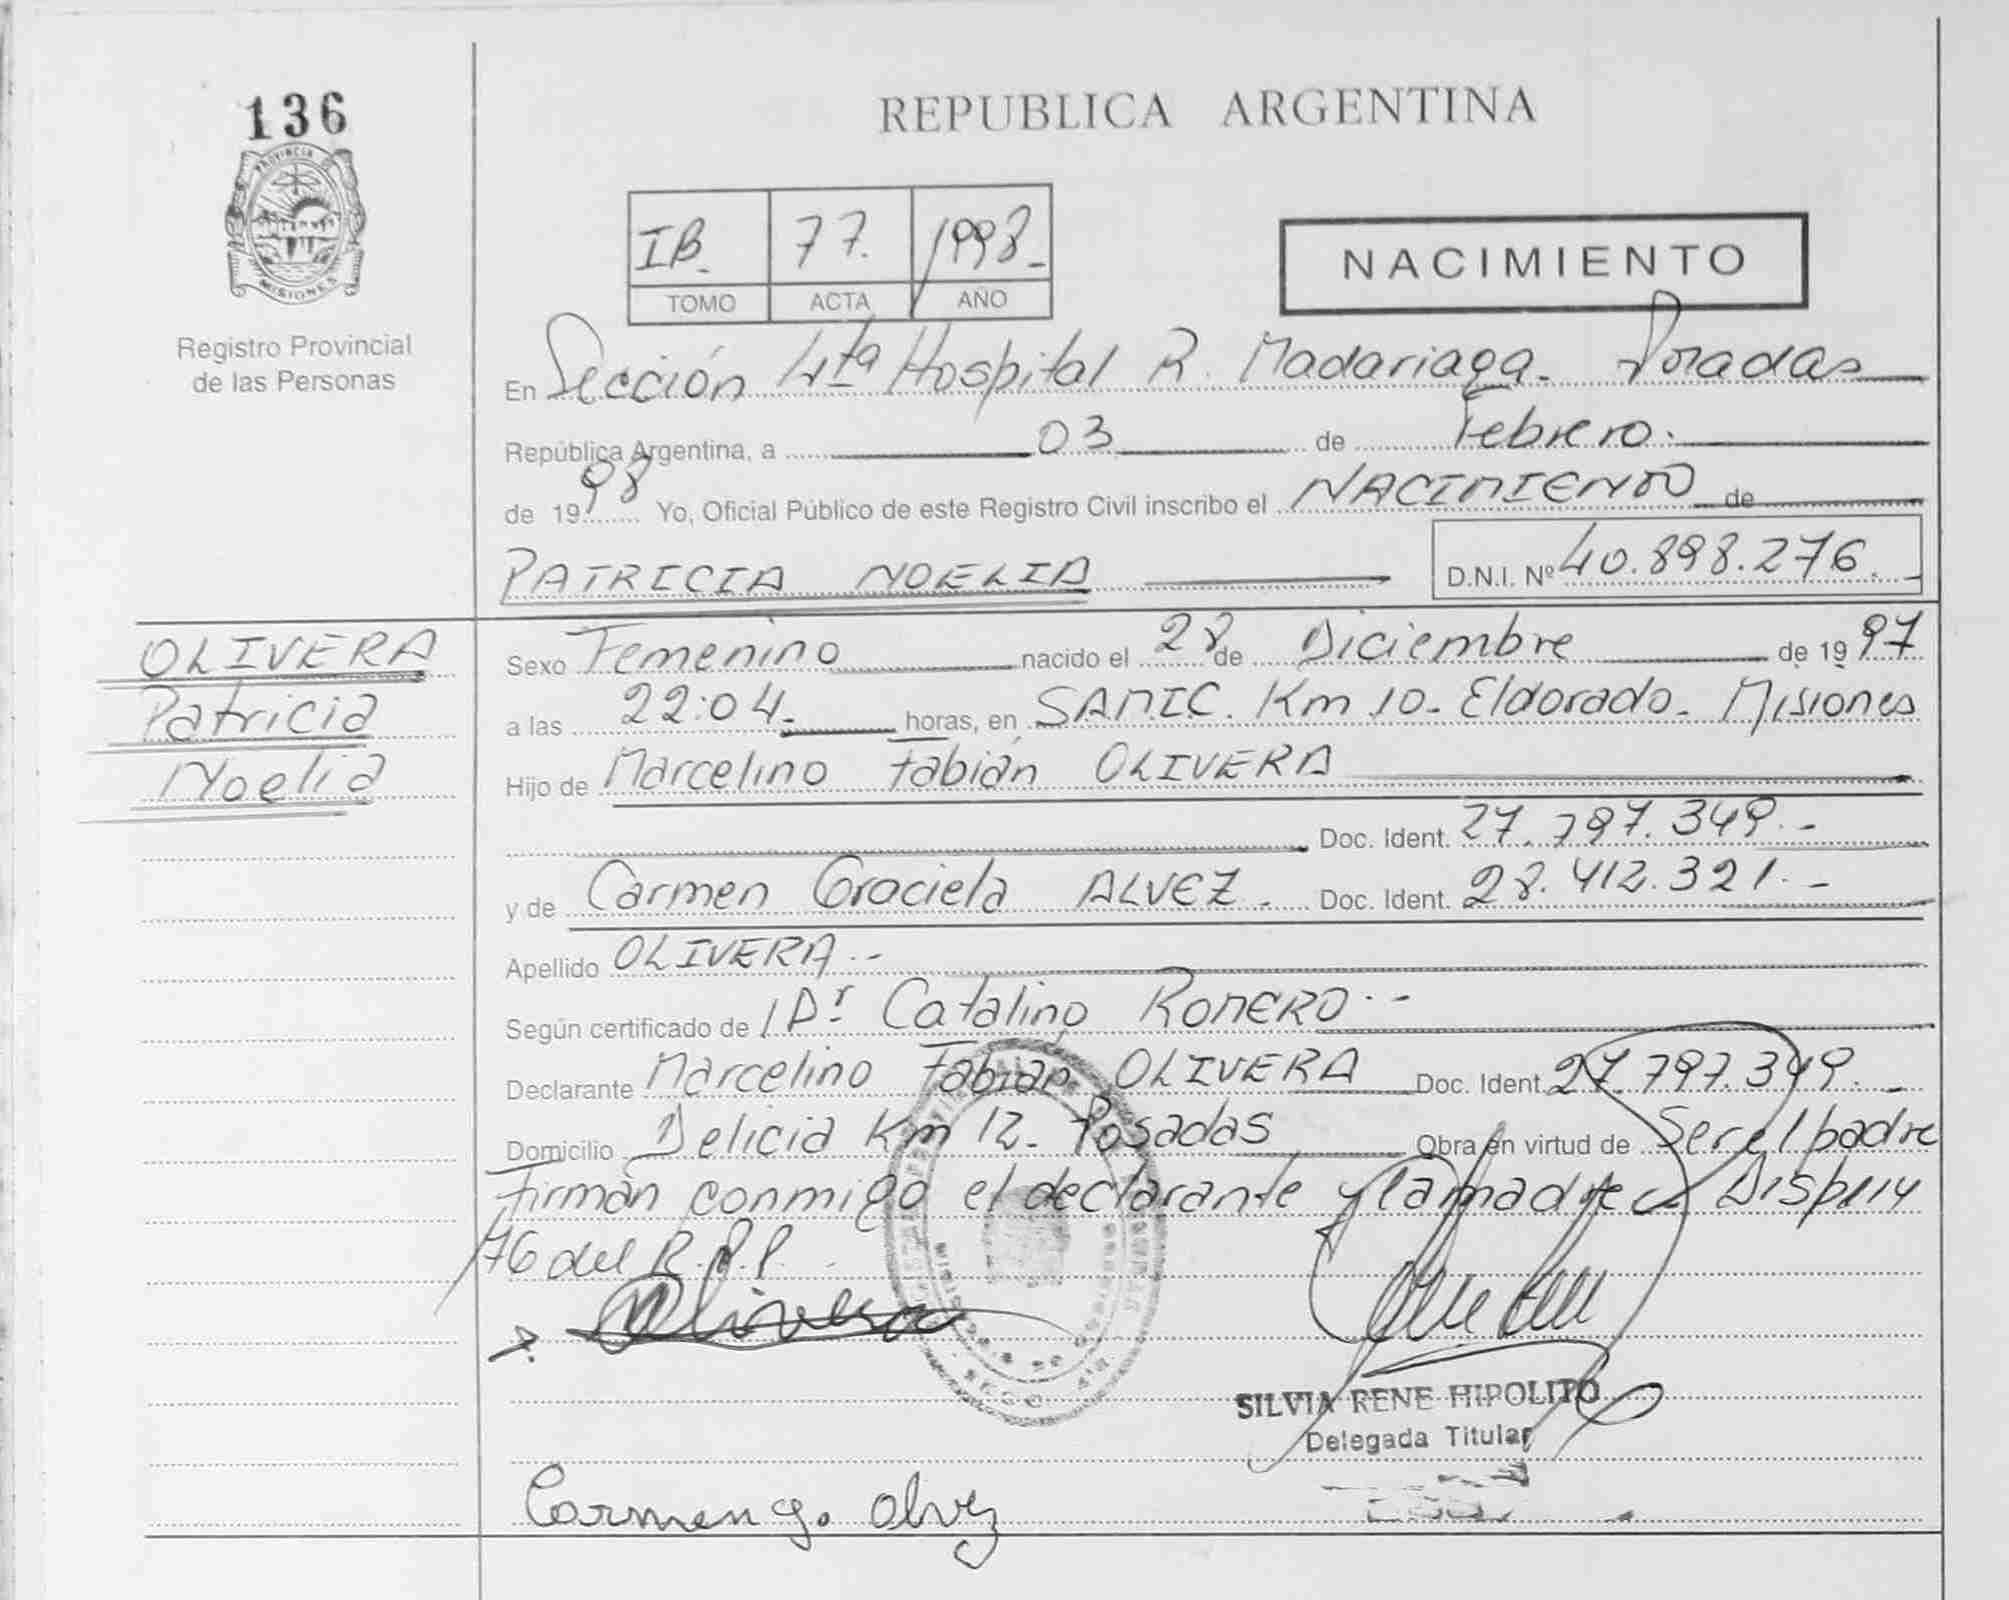 136
REPUBLICA ARGENTINA
PROVINCIA DE
MISIONES
Registro Provincial
de las Personas
IB. 77. 1998.-
TOMO ACTA AÑO
NACIMIENTO
En Sección 4ta Hospital R. Madariaga. Posadas
República Argentina, a 03 de Febrero.
de 1998 Yo, Oficial Público de este Registro Civil inscribo el NACIMIENTO de
PATRICIA NOELIA D.N.I. Nº 40.898.276.-
OLIVERA
Patricia
Noelia
Sexo Femenino nacido el 28 de Diciembre de 1997
a las 22:04.- horas, en SAMIC. Km 10. Eldorado. Misiones
Hijo de Marcelino Fabián OLIVERA
Doc. Ident. 27.797.349.-
y de Carmen Graciela ALVEZ. Doc. Ident. 28.412.321.-
Apellido OLIVERA.-
Según certificado de Dr Catalino ROMERO.-
Declarante Marcelino Fabián OLIVERA Doc. Ident. 27.797.349.-
Domicilio Delicia Km 12. Posadas Obra en virtud de Ser el padre
Firman conmigo el declarante y la madre
76 del R.P.P.
Olivera
SILVIA RENE HIPOLITO
Delegada Titular
Carmen g. Alvez